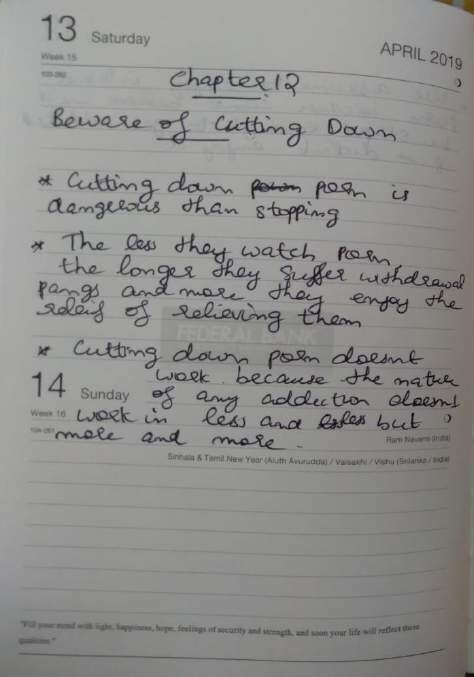 13 Saturday
APRIL 2019
Week 15
103-262
Chapter 12
Beware of Cutting Down
* Cutting down porn is
dangerous than stopping
* The less they watch porn,
the longer they suffer withdrawal
pangs and more they enjoy the
releif of relieving them
FEDERAL BANK
* Cutting down porn doesnt
work because the nature
14 Sunday of any addiction doesnt
Week 16 work in less and but
104-261 more and more.
Ram Navami (India)
Sinhala & Tamil New Year (Aluth Avurudda) / Vaisakhi / Vishu (Srilanka / India)
"Fill your mind with light, happiness, hope, feelings of security and strength, and soon your life will reflect these
qualities."